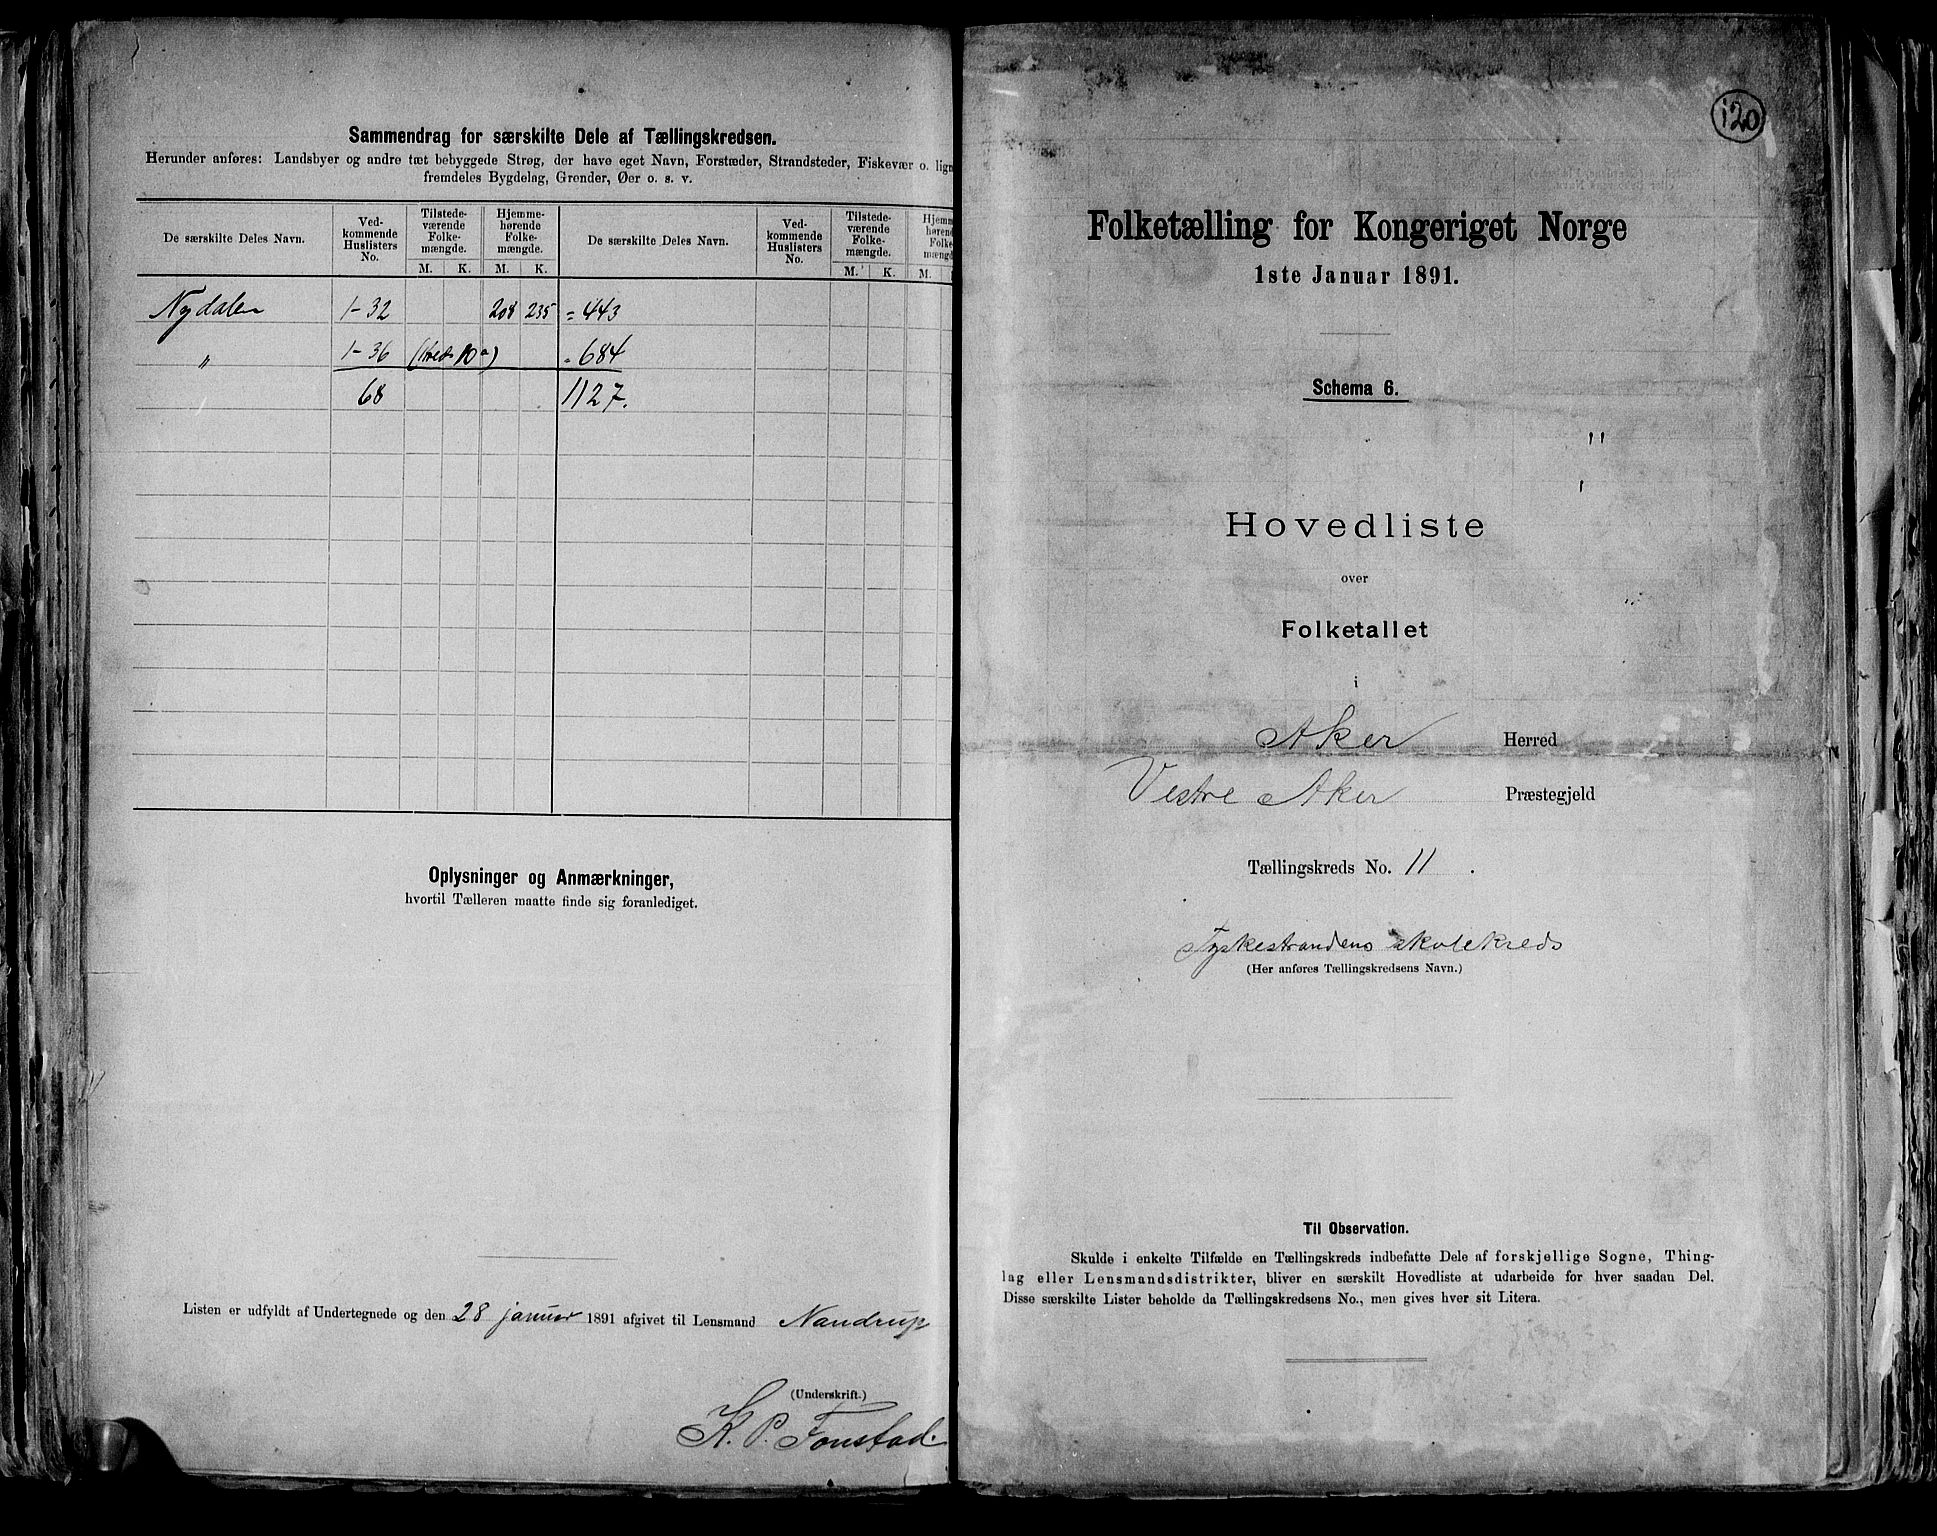 Sammendrag for særskilte Dele af Tællingskredsen.
Herunder anføres: Landsbyer og andre tæt bebyggede Strøg, der have eget Navn, Forstæder, Strandsteder, Fiskevær o. lign
fremdeles Bygdelag, Grender, Øer o. s. v.
De særskilte Deles Navn. Ved-kommende Huslisters No. Tilstede-værende Folke-mængde. Hjemme-hørende Folke-mængde. De særskilte Deles Navn. Ved-kommende Huslisters No. Tilstede-værende Folke-mængde. Hjemm hørend Folke mængd
M. K. M. K. M. K. M.
Nydalen 1-32 208 235 = 443
" 1-36 (Kreds 10a) = 684
68 1127.
Oplysninger og Anmærkninger,
hvortil Tælleren maatte finde sig foranlediget.
Listen er udfyldt af Undertegnede og den 28 januar 1891 afgivet til Lensmand Nandrup
(Underskrift.)
K. P. Fonstad.
120
Folketælling for Kongeriget Norge
1ste Januar 1891.
Schema 6.
Hovedliste
over
Folketallet
i
Aker Herred
Vestre Aker Præstegjeld
Tællingskreds No. 11.
Tyskestrandens skolekreds
(Her anføres Tællingskredsens Navn.)
Til Observation.
Skulde i enkelte Tilfælde en Tællingskreds indbefatte Dele af forskjellige Sogne, Thing-
lag eller Lensmandsdistrikter, bliver en særskilt Hovedliste at udarbeide for hver saadan Del.
Disse særskilte Lister beholde da Tællingskredsens No., men gives hver sit Litera.